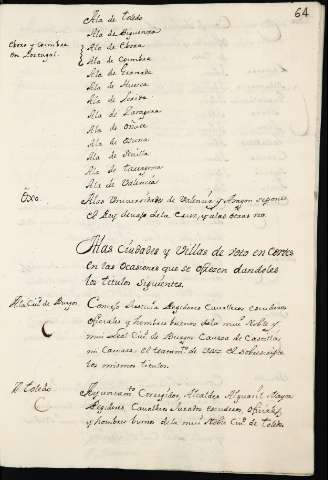 64
A la de Toledo
A la de Siguenza
Ebora y Coimbra
en Portugal.
A la de Ebora
A la de Coimbra
A la de Granada
A la de Huesca
A la de Lerida
A la de Zaragoza
A la de Oñate
A la de Osuna
A la de Sevilla
A la de Tarragona
A la de Valencia
Ojo.
A las Universidades de Valencia y Aragon se pone
el Rey debajo de la Cruz, y a las otras no
A las Ciudades y Villas de voto en Cortes
en las ocasiones que se ofrecen dandoles
los titulos siguientes.
A la Ciud. de Burgos
Concejo Justicia Regidores Cavalleros escuderos
oficiales y hombres buenos de la mui Noble y
mui Leal Ciud. de Burgos Caveza de Castilla,
mi Camara. el
los mismos titulos.
A Toledo
Ayuntamto. Corregidor, Alcaldes Alguacil Mayor
Regidores Cavalleros Jurados escuderos, oficiales
y hombres buenos de la mui Noble Ciud. de Toledo